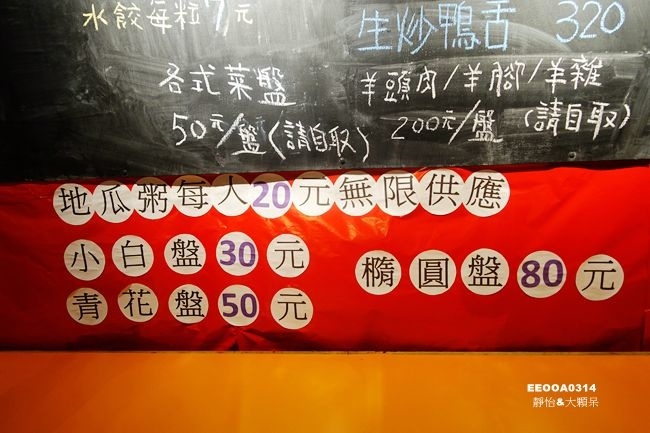 水餃每粒7元
生炒鴨舌 320
各式菜盤
50元/盤(請自取)
羊頭肉/羊腳/羊雜
200元/盤 (請自取)
地瓜粥每人20元無限供應
小白盤30元
青花盤50元
橢圓盤80元
EEOOA0314
靜怡&大顆呆